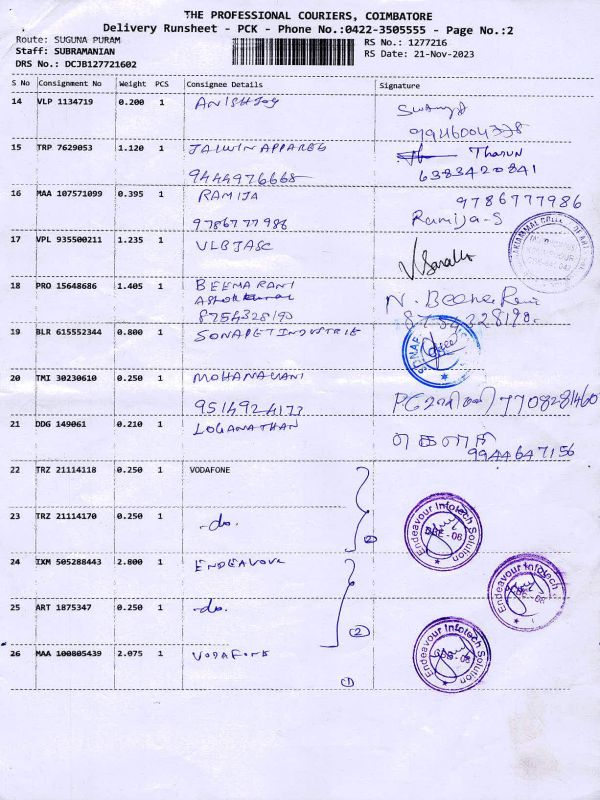 THE PROFESSIONAL COURIERS, COIMBATORE
Delivery Runsheet - PCK - Phone No.:0422-3505555 - Page No.:2
Route: SUGUNA PURAM
Staff: SUBRAMANIAN
DRS No.: DCJB127721602
RS No.: 1277216
RS Date: 21-Nov-2023
S No Consignment No Weight PCS Consignee Details Signature
14 VLP 1134719 0.200 1 ANISHJOY
9946004338
15 TRP 7629053 1.120 1 JALWIN APPARELS Tharun
9444976668 6383420841
16 MAA 107571099 0.395 1 RAMIJA 9786777986
9786777986 Ramija-S
17 VPL 935500211 1.235 1 VLBJASC V. Saralla
18 PRO 15648686 1.405 1 BEEMA RANI
Ashokkumar N. Beema Rani
8754328190 8754328190
19 BLR 615552344 0.800 1 SONAPET INDUSTRIE
20 TMI 30230610 0.250 1 MOHANAVANI
9514924173 7708281460
21 DDG 149061 0.210 1 LOGANATHAN
9944647156
22 TRZ 21114118 0.250 1 VODAFONE
23 TRZ 21114170 0.250 1 -do. 2
Endeavour Infotech Solution
CBE-08
24 IXM 505288443 2.800 1 ENDEAVOUR
Endeavour Infotech
25 ART 1875347 0.250 1 -do. 2
26 MAA 100805439 2.075 1 VODAFONE 1
Endeavour Infotech Solution
CBE-08